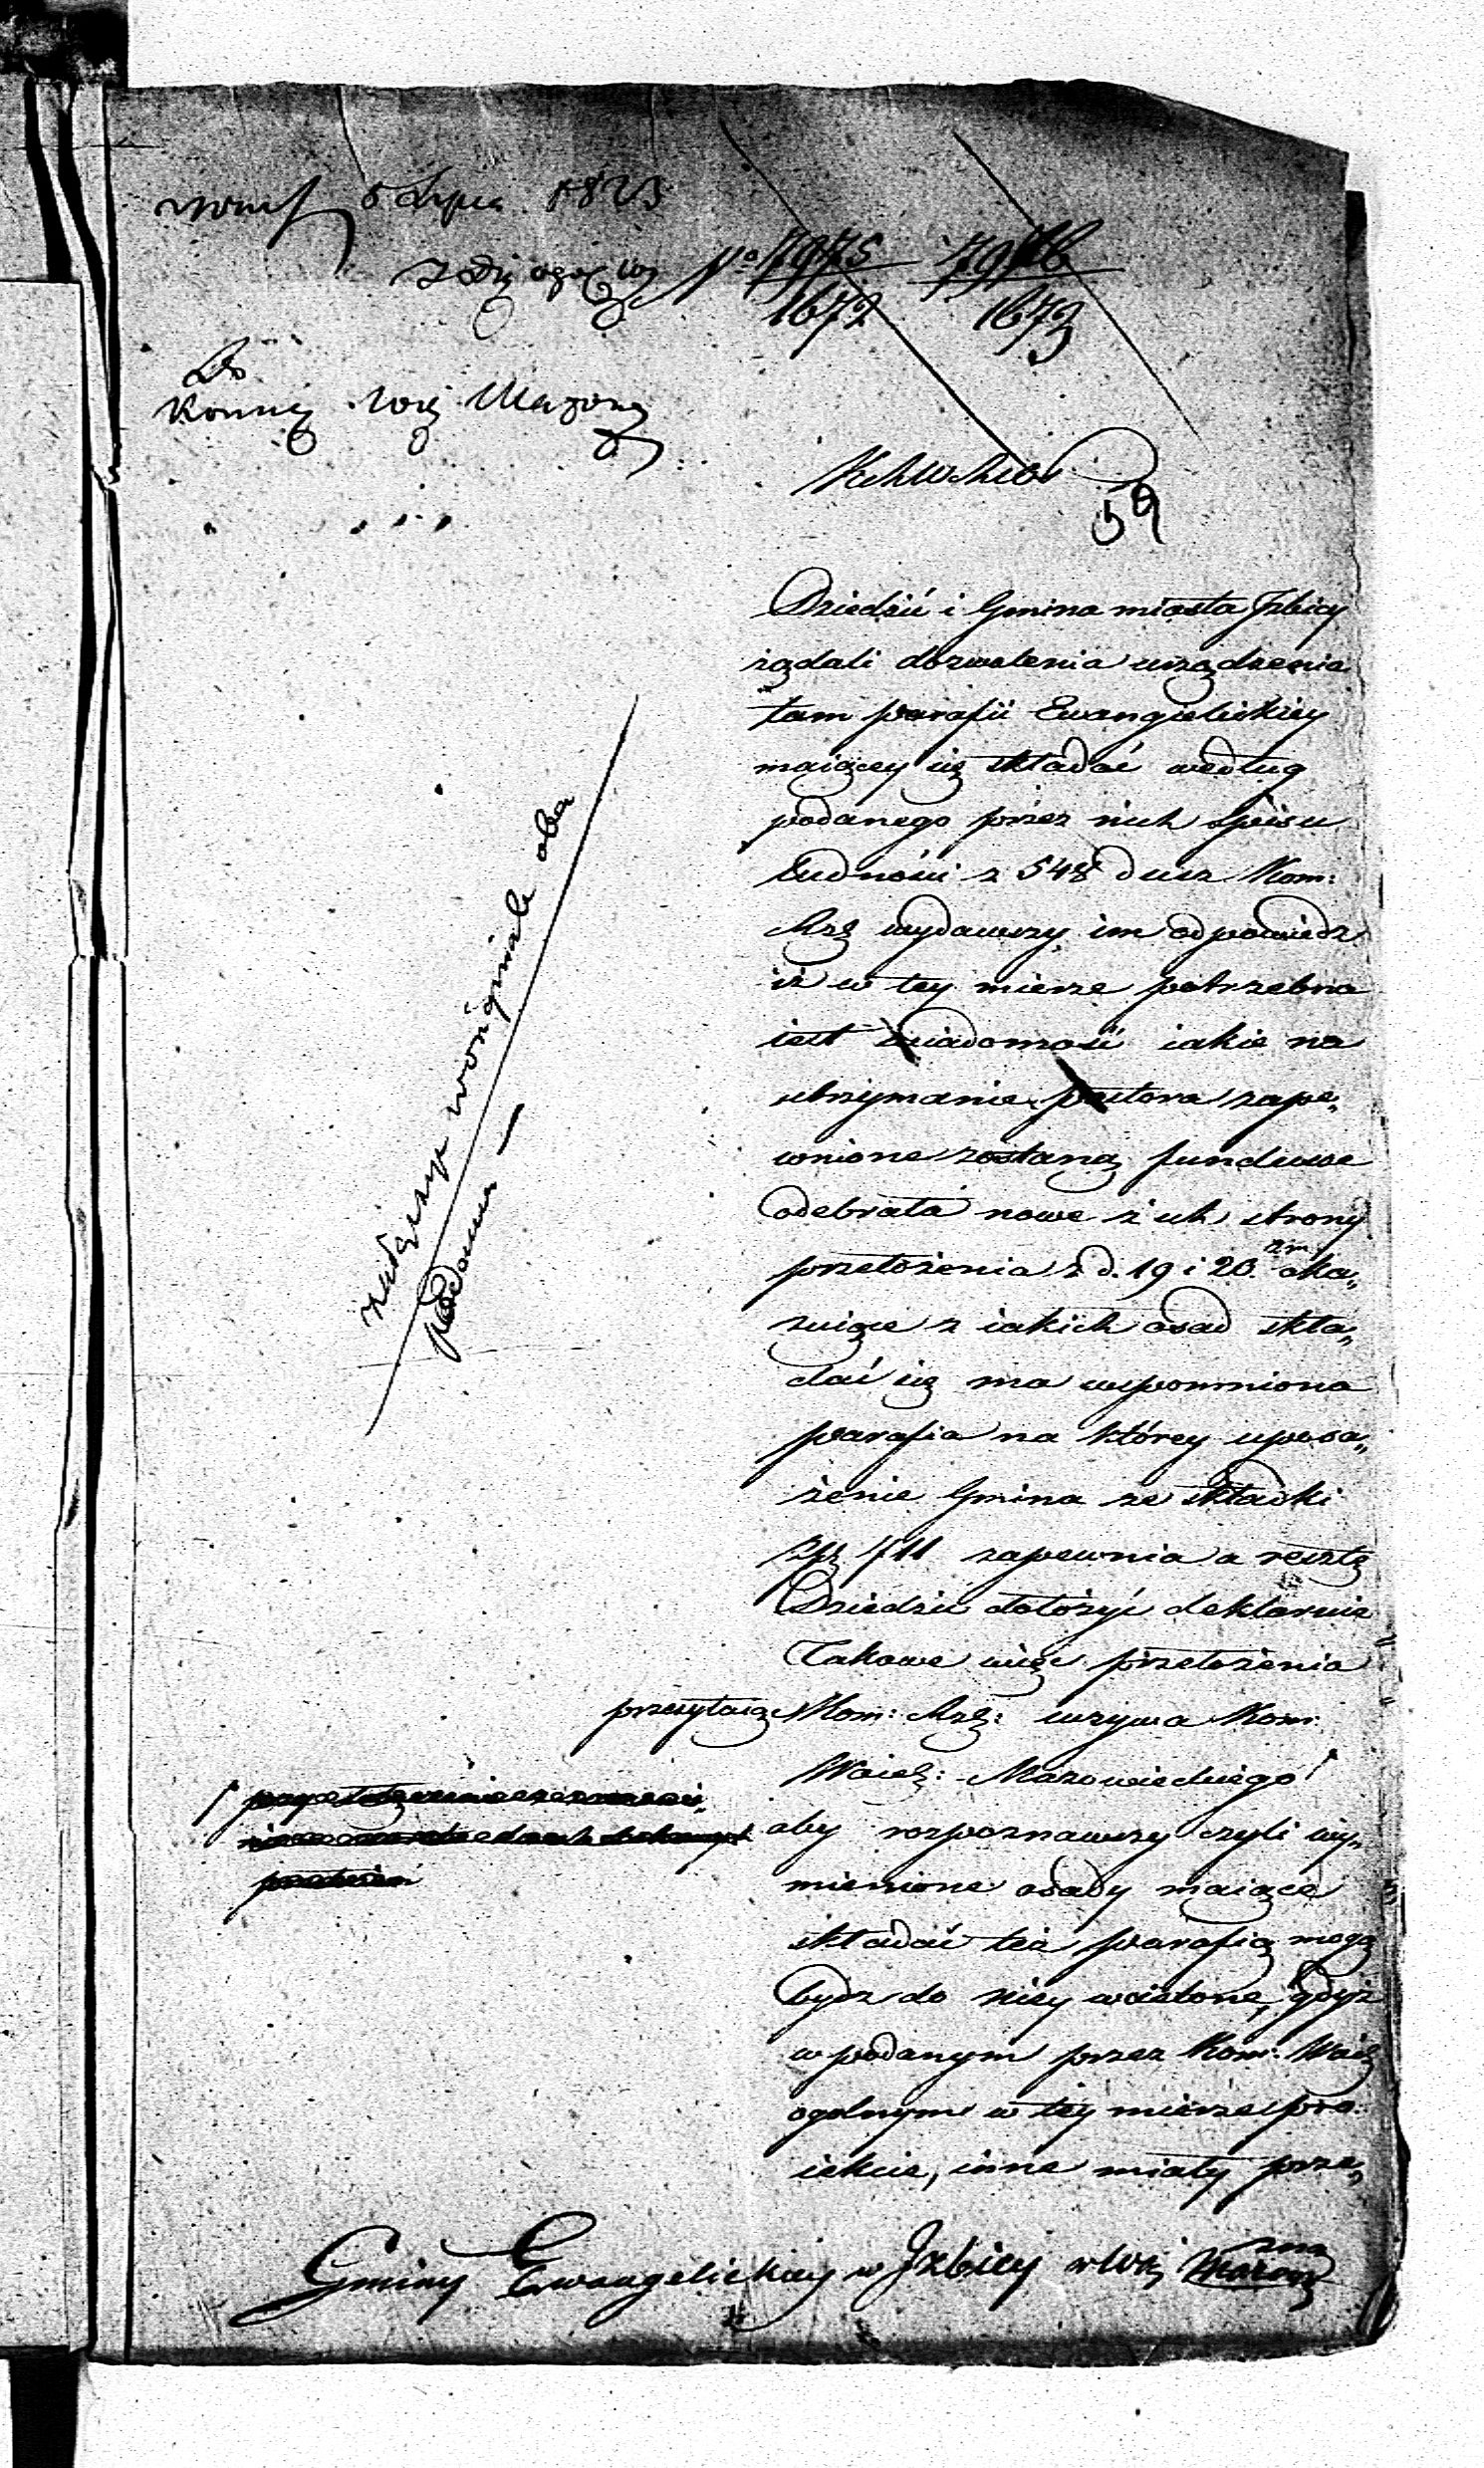 5 Lipca 1823
No 7975 7976
1672 1673
Do
Kommis. Woj Mazow
59
Dziedzic i Gmina miasta Izbicy
żądali dozwolenia urządzenia
tam parafii Ewangielickiey
maiącey się składać według
podanego przez nich spisu
ludności z 548 dusz Kom:
Rzą wydawszy im odpowiedz
iż w tey mierze potrzebna
iest wiadomość iakie na
utrzymanie pastora zape„
wnione zostaną fundusze
odebrała nowe z ich strony
przełożenia z d. 19 i 20. zm. oka„
zuiące z iakich osad skła„
dać się ma wspomniona
parafia na którey uposa„
żenie Gmina ze składki
Złp 711 zapewnia a resztę
Dziedzic dołożyć deklaruie
Takowe więc przełożenia
przesyłaiąc Kom: Rzą: wzywa Kom:
Woiew: Mazowieckiego
aby rozpoznawszy czyli wy„
mienione osady maiące
składać też parafią mogą
bydź do niey wcielone, gdyż
w podanym przez Kom: Woie
ogolnym w tey mierze pro„
iekcie, inne miały prze„
załączyć w oryginale oba
podania —
Gminy Ewangelickiey w Izbicy w Woj Mazow